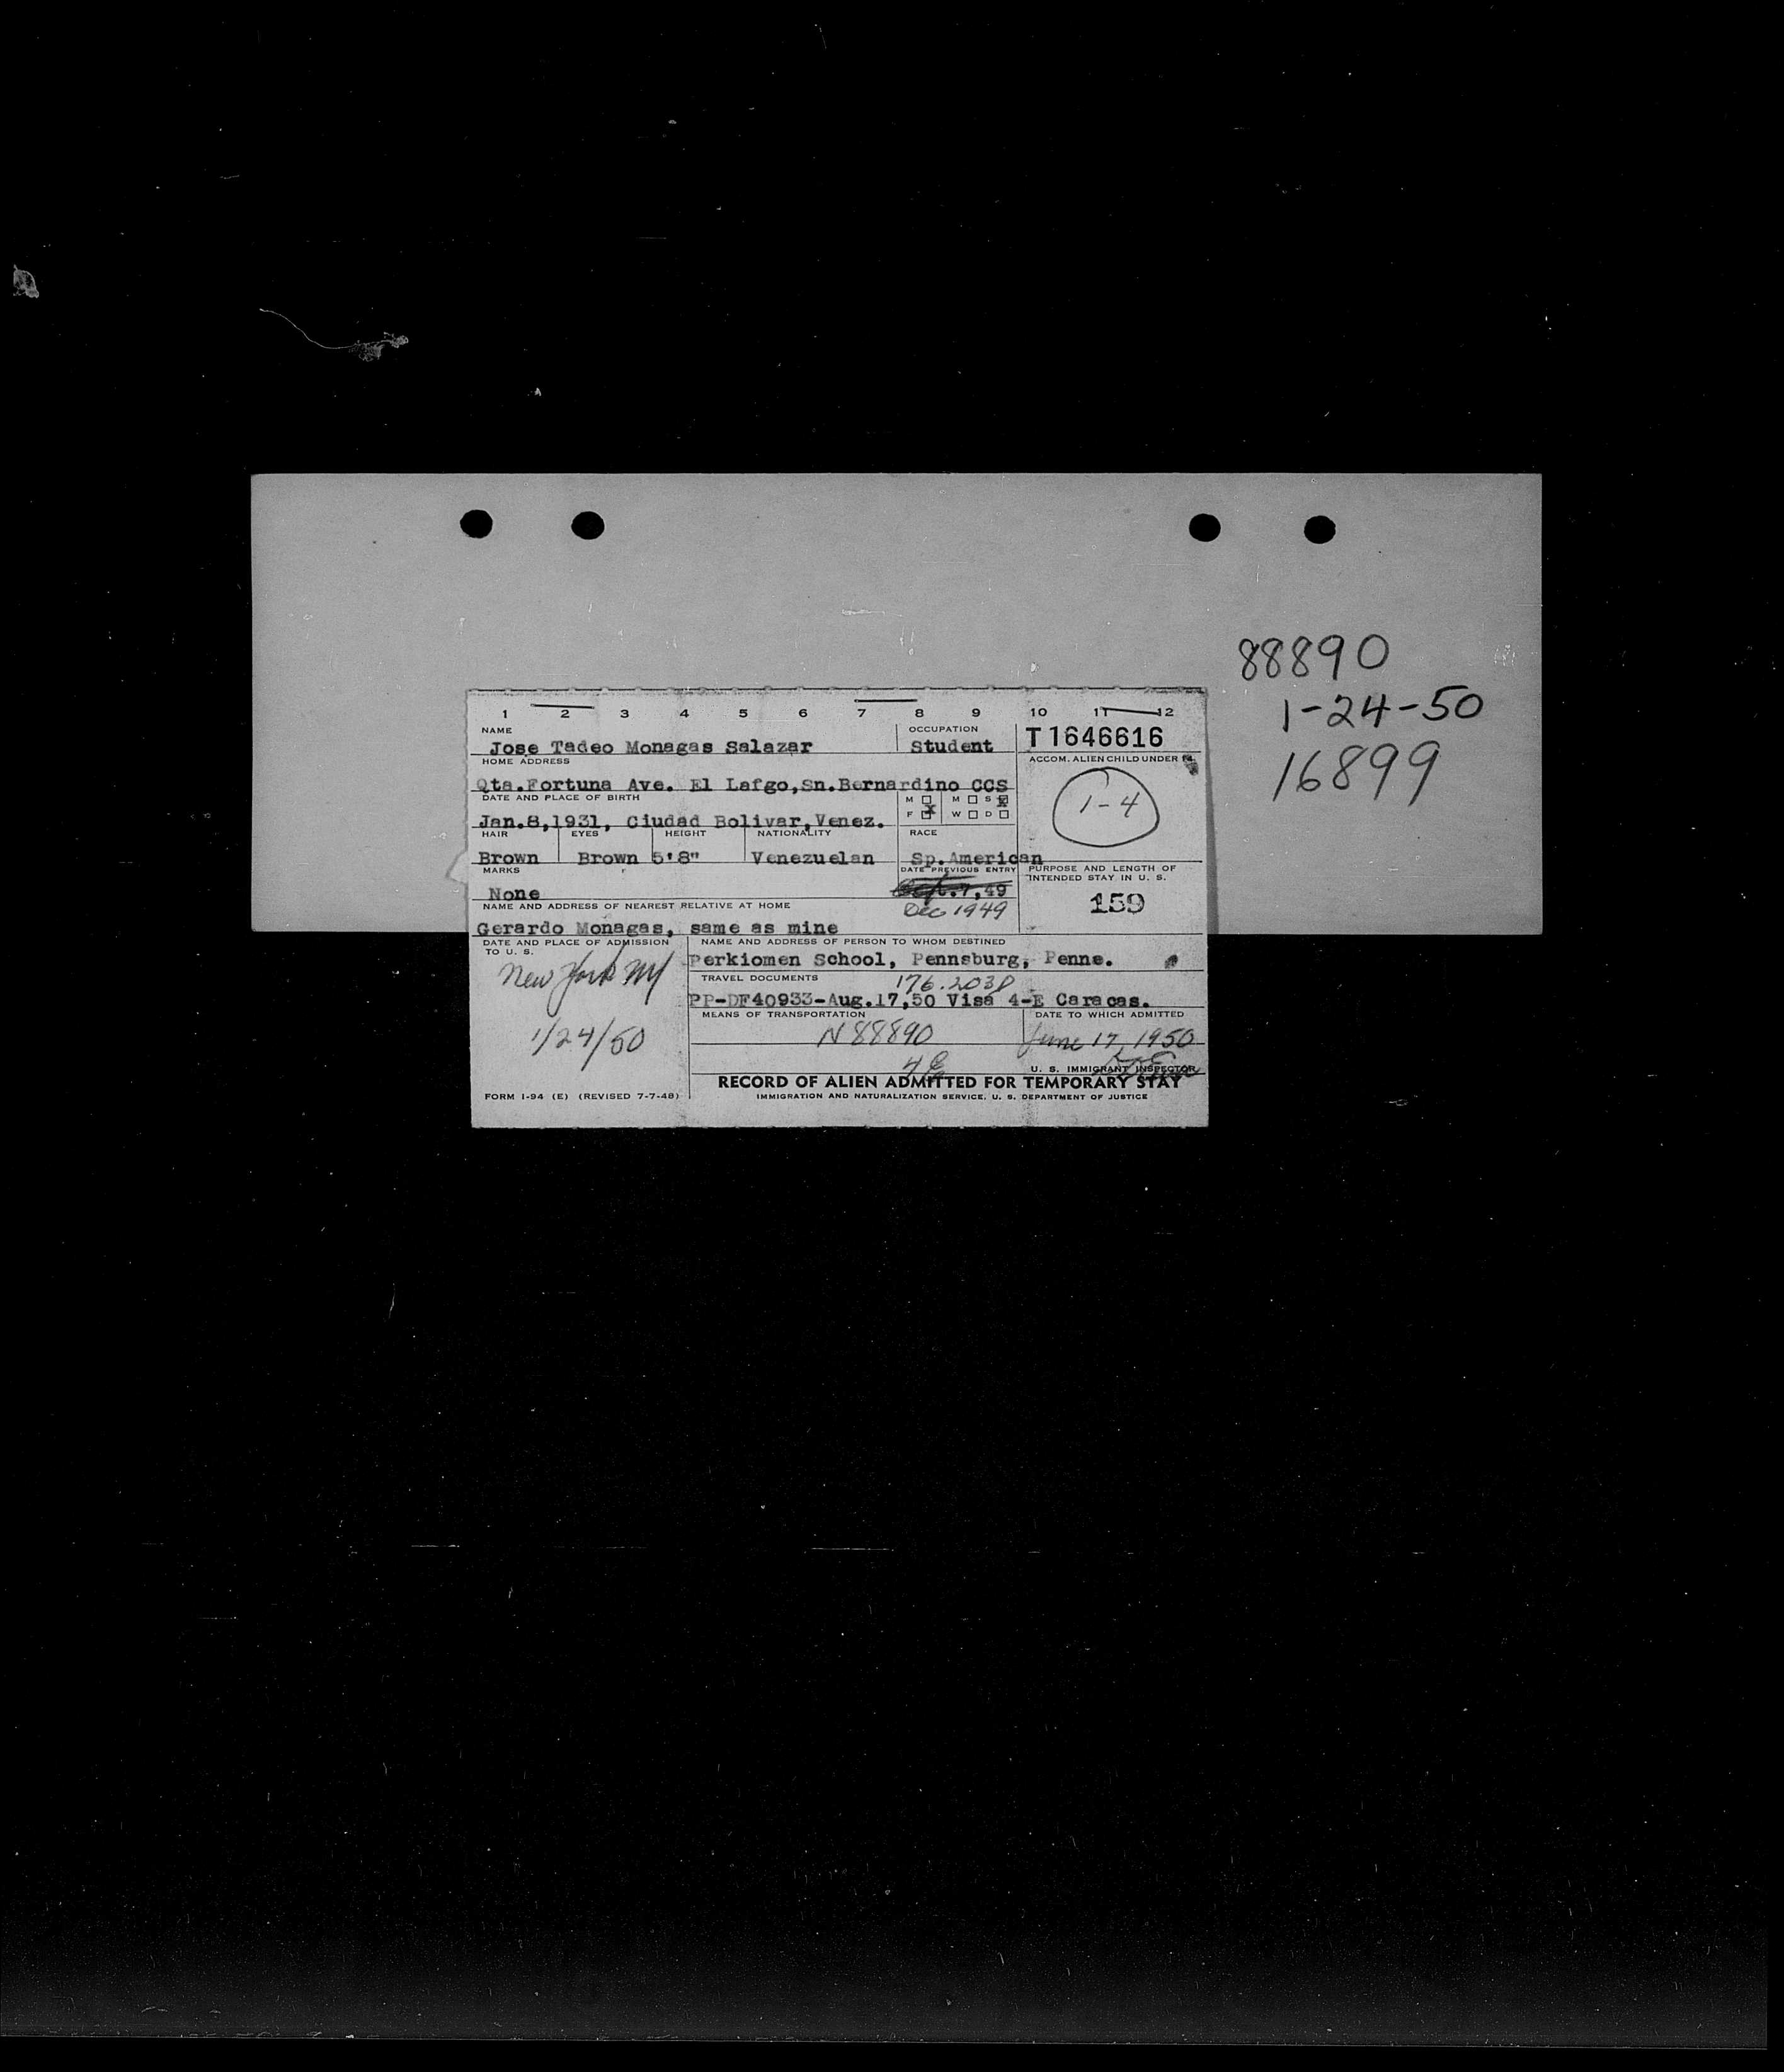 88890
1-24-50
16899
1 2 3 4 5 6 7 8 9 10 11 12
NAME
Jose Tadeo Monagas Salazar
OCCUPATION
Student
T1646616
HOME ADDRESS
Qta.Fortuna Ave. El Lafgo,Sn.Bernardino CCS
ACCOM. ALIEN CHILD UNDER 14
1-4
DATE AND PLACE OF BIRTH
Jan.8,1931, Ciudad Bolivar,Venez.
M M S X
F X W D
HAIR EYES HEIGHT NATIONALITY RACE
Brown Brown 5'8" Venezuelan Sp.American
MARKS
None
DATE PREVIOUS ENTRY
7,49
Dec 1949
PURPOSE AND LENGTH OF
INTENDED STAY IN U. S.
159
NAME AND ADDRESS OF NEAREST RELATIVE AT HOME
Gerardo Monagas, same as mine
DATE AND PLACE OF ADMISSION
TO U. S.
New York NY
1/24/50
NAME AND ADDRESS OF PERSON TO WHOM DESTINED
Perkiomen School, Pennsburg, Penne.
TRAVEL DOCUMENTS
PP-DF40933-Aug.17,50 Visa 4-E Caracas.
MEANS OF TRANSPORTATION
N 88890
DATE TO WHICH ADMITTED
June 17, 1950
U. S. IMMIGRANT INSPECTOR
RECORD OF ALIEN ADMITTED FOR TEMPORARY STAY
FORM I-94 (E) (REVISED 7-7-48)
IMMIGRATION AND NATURALIZATION SERVICE, U. S. DEPARTMENT OF JUSTICE